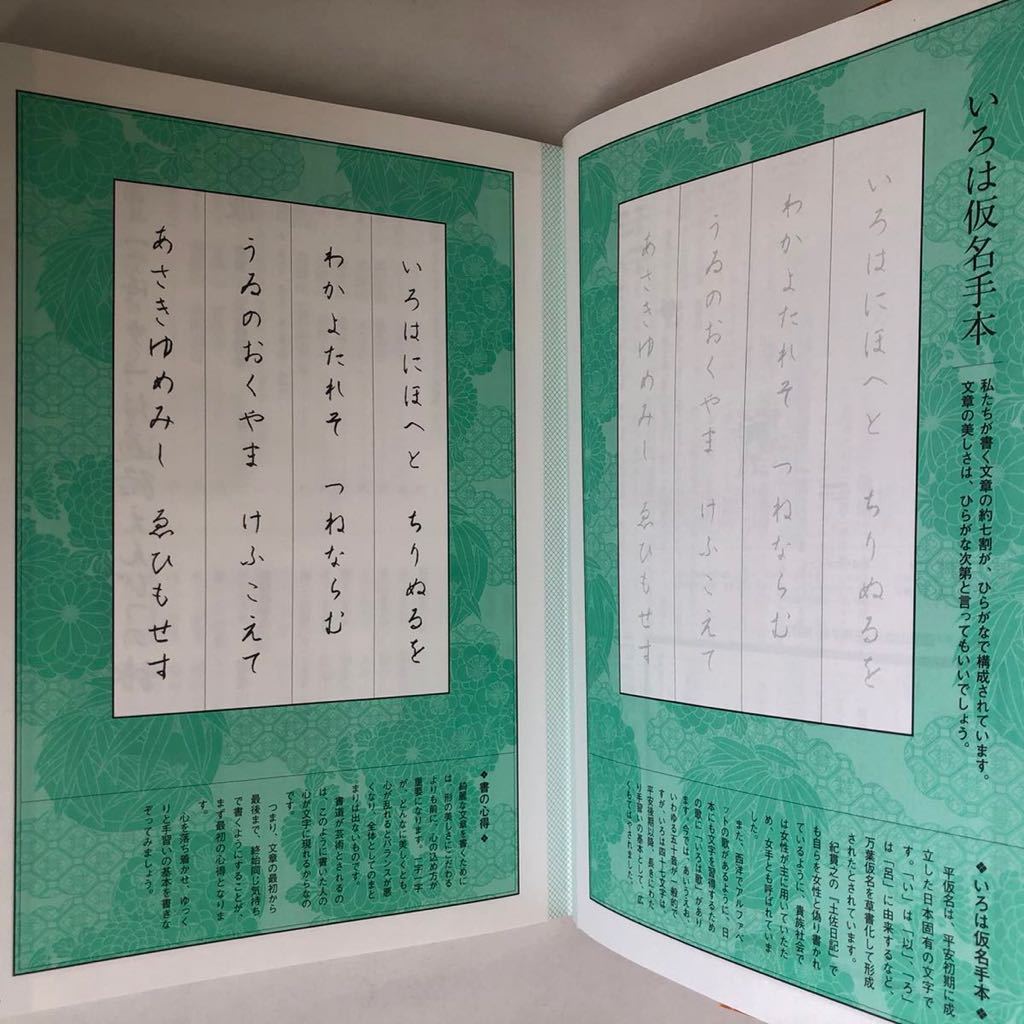 いろは仮名手本
私たちが書く文章の約七割が、ひらがなで構成されています。
文章の美しさは、ひらがな次第と言ってもいいでしょう。
いろはにほへと ちりぬるを
わかよたれそ つねならむ
うゐのおくやま けふこえて
あさきゆめみし ゑひもせす
◆いろは仮名手本◆
平仮名は、平安初期に成
立した日本固有の文字で
す。「い」は「以」、「ろ」
は「呂」に由来するなど、
万葉仮名を草書化して形成
されたとされています。
紀貫之の『土佐日記』で
も自らを女性と偽り書かれ
ているように、貴族社会で
は女性が主に用いていたた
め、女手とも呼ばれていま
した。
また、西洋でアルファベ
ットの歌があるように、日
本にも文字を習得するため
の歌に「いろは歌」があり
ます。今では、あいうえお、
いわゆる五十音が一般的で
すが、いろは四十七文字は
平安後期以降、長きにわた
り手習いの基本として、広
くもてはやされました。
いろはにほへと ちりぬるを
わかよたれそ つねならむ
うゐのおくやま けふこえて
あさきゆめみし ゑひもせす
◆書の心得◆
綺麗な文章を書くために
は、形の美しさにこだわる
よりも前に、心の込め方が
重要になります。一字一字
が、どんなに美しくとも、
心が乱れるとバランスが悪
くなり、全体としてのまと
まりは出ないものです。
書道が芸術とされるの
は、このように書いた人の
心が文字に現れるからなの
です。
つまり、文章の最初から
最後まで、終始同じ気持ち
で書くようにすることが、
まず最初の心得となりま
す。
心を落ち着かせ、ゆっく
りと手習いの基本を書きな
ぞってみましょう。